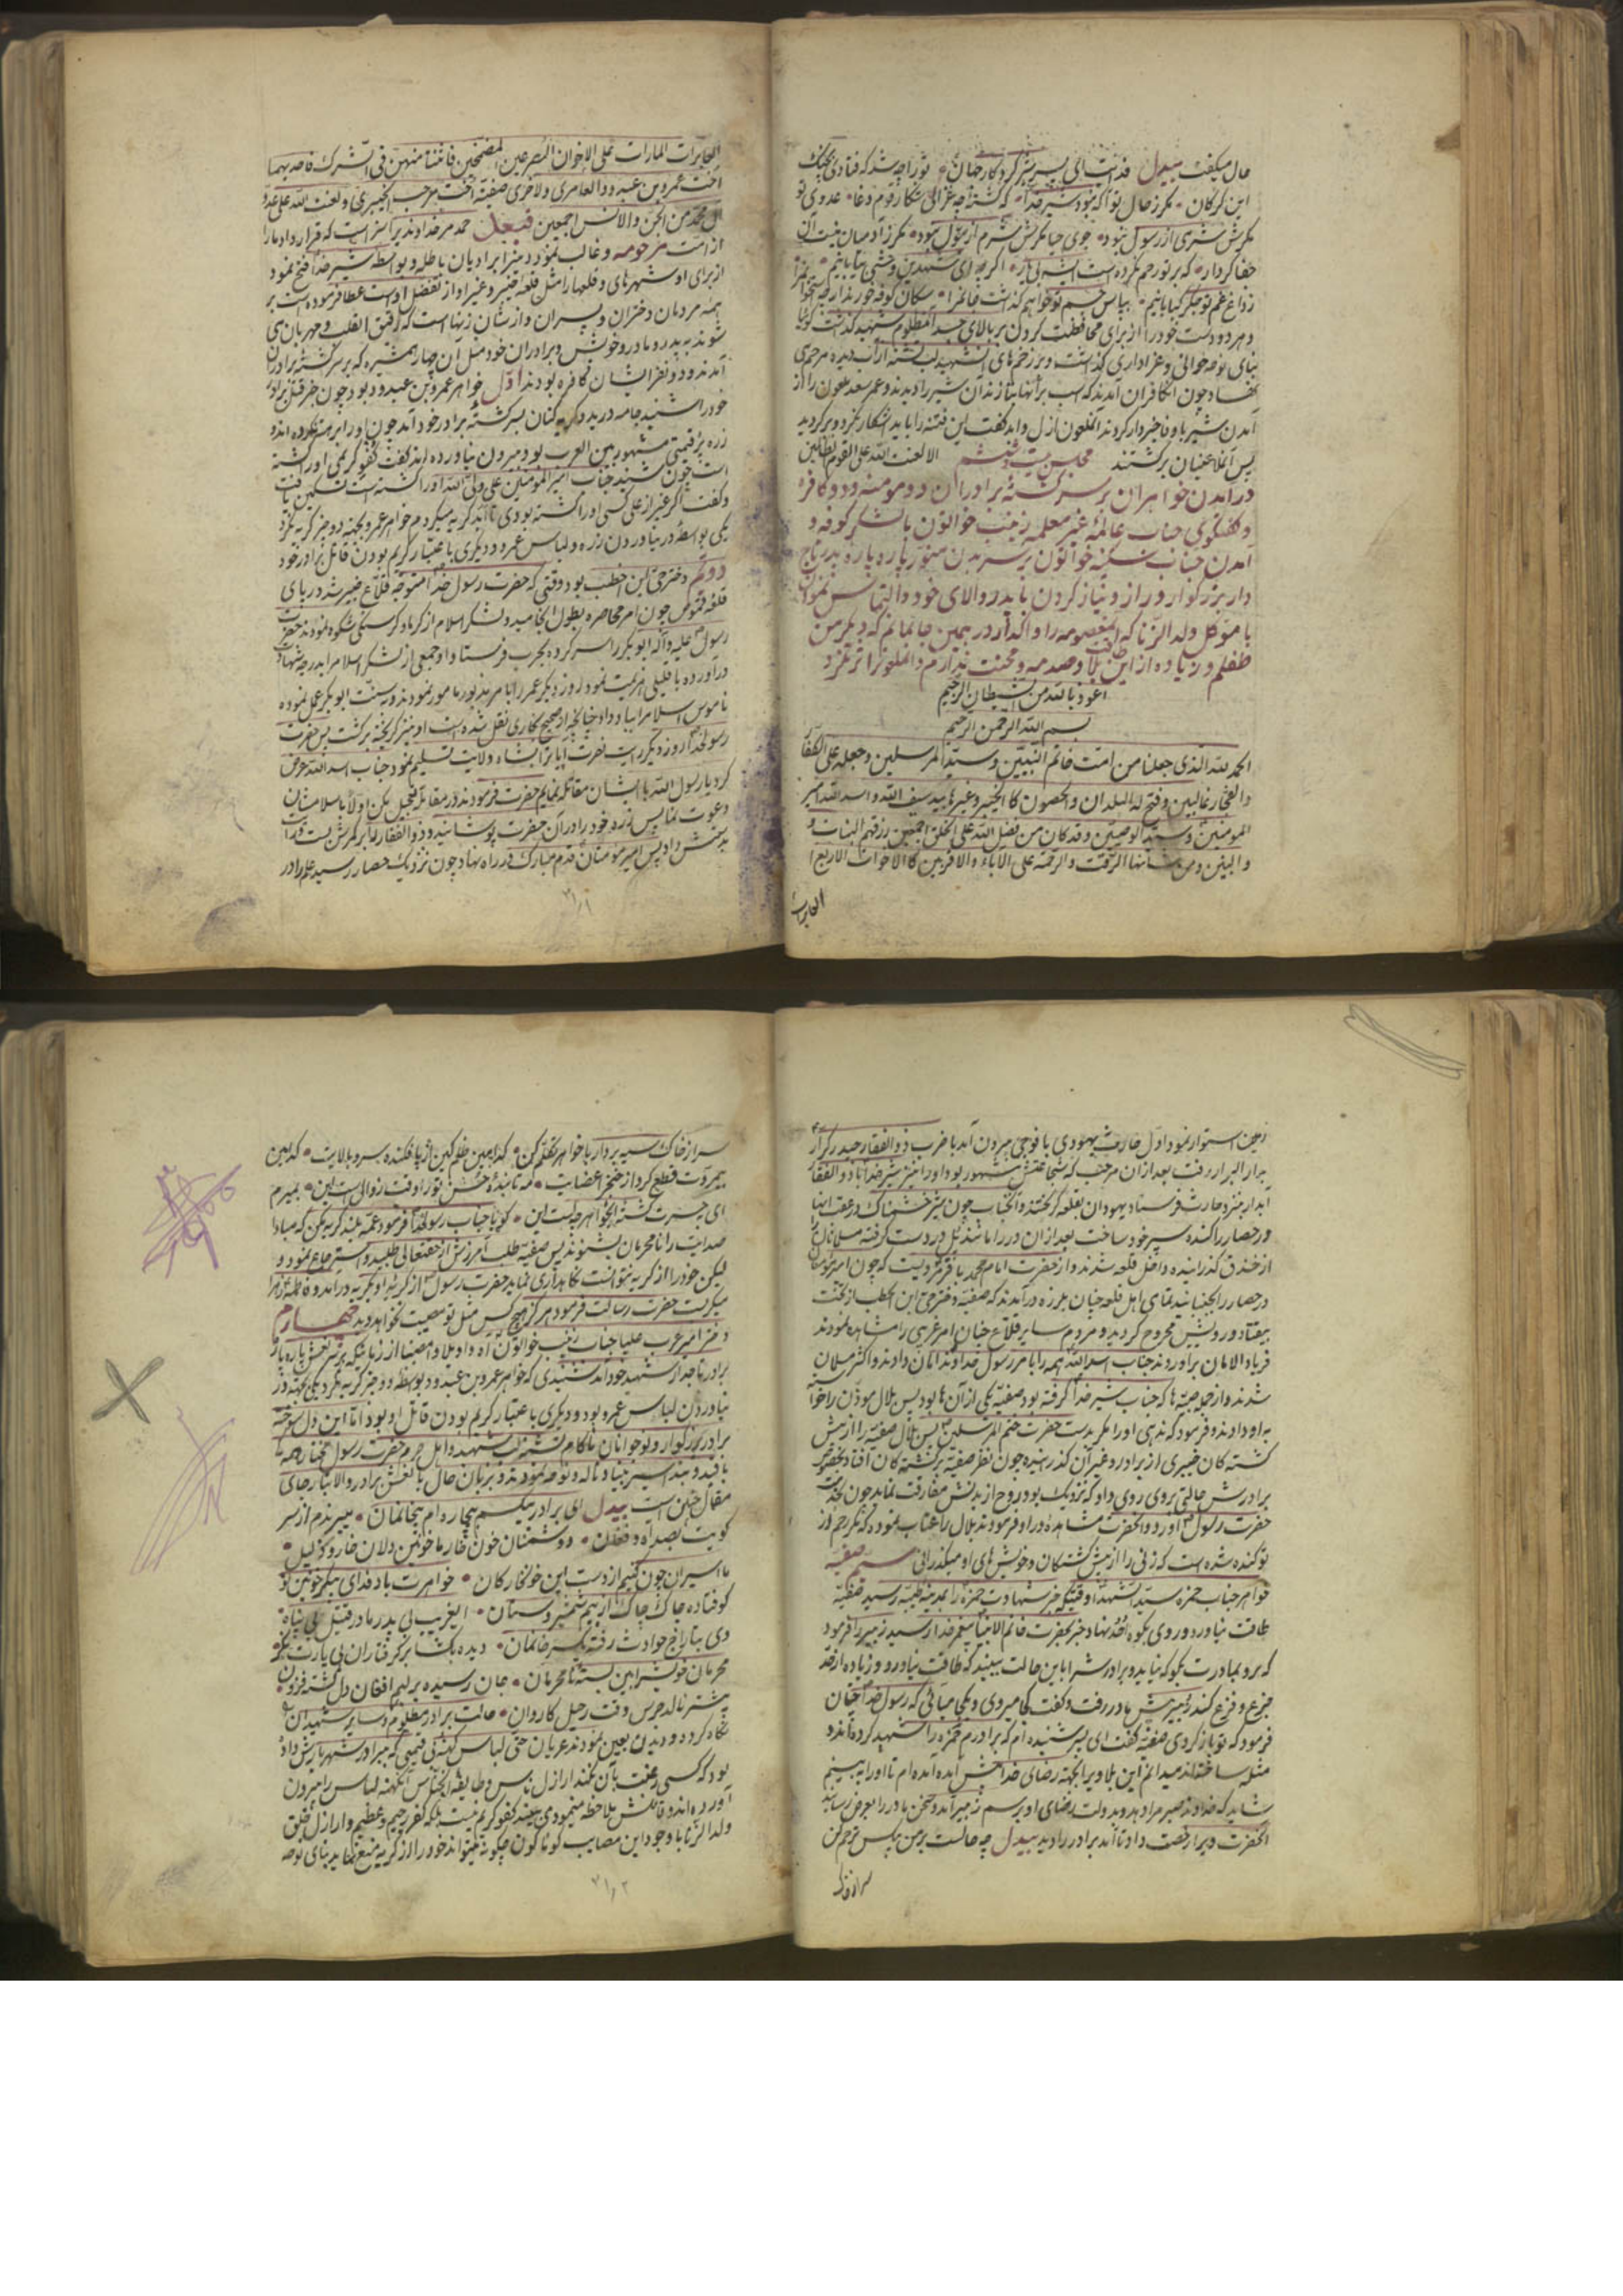 حال میگفت بیدل فدیت ای پسر شیر کردکار جهان تو را چه شد که فتادی بچنگ
این گرکان مکر ز حال تو آگه نبود شیر خدا که کشته چه غزالی شکار قوم دغا عدوی تو
مکرش شرمی از رسول نبود جوی حیا مکرش شرم از بتول نبود مکر ز آدمیان نیست آن
جفا کردار که بر تو رحم نکرده است اکرچه ای شهدین وحشی بیابانیم
ز داغ غم تو جکر کبابانیم بپاس جسم تو خواهم کذاشت جانم را سکان کوفه خورند ار چه استخوانم را
و هر دو دست خود را از برای محافظت کردن بر بالای جسد آنمظلوم شهید کذاشت کویا
بنای نوحه خوانی و عزاداری کذاشت و بر زخمهای آنشهید لب تشنه از آب دیده مرحمی
نهاد چون آنکافران آمدند که اسب بر آنها بتازند آن شیر را دیدند و عمر سعد ملعون را از
آمدن شیر با وفا خبردار کردند آنملعون ازل و ابد کفت این فتنه را باید آشکار نکرد و برکردید
پس آنملاعنیان برکشتند مجلس بیست و ششم الا لعنت الله علی القوم الظالمین
در آمدن خواهران بر سر کشته برادران دو مومنه و دو کافره
و کفتکوی جناب عالمه غیر معلمه زینب خواتون با لشکر کوفه و
آمدن جناب سکینه خواتون بر سر بدن منور پاره پاره پدر تاج
دار بزرکوار و راز و نیاز کردن با پدر والای خود و التماس نمودن
با موکل ولد الزنا که آنمعصومه را واکذار در همین جا بمانم که دیکر من
طفلم و زیاده از این بلا و صدمه و محنت طاقت ندارم و آنملعون را ترنکرد
اعوذ بالله من الشیطان الرجیم
بسم الله الرحمن الرحیم
الحمد لله الذی جعلنا من امت خاتم النبیین و سید المرسلین و جعله علی الکفار
و الفجار غالبین و فتح له البلدان و الحصون کالخیبر و غیرها بید سیف الله و اسد الله امیر
المومنین و سید الوصیین و قد کان من فضل الله علی الخلق اجمعین رزقهم البنات و
و البنین و من شانها الرقت و الرحمه علی الآباء و الاقربین کالاخوات الاربع
الجایرات
الجایرات المارات علی الاخوان المصرعین المضمخین فاثنتا منهن فی الشرک فاحدیهما
اخت عمرو بن عبدود العامری و الاخری صفیه اخت مرحب الخیبری و لعنت الله علی عدو
آل محمد من الجن و الانس اجمعین فبعد حمد مر خداوندیرا سزاست که قرار داد ما را
از امت مرحومه و غالب نمود دین ما را بر ادیان باطله و بواسطه شیر خدا فتح نمود
از برای او شهرهای و قلعها را مثل قلعه خیبر و غیر او و از تفضل اوست عطا فرموده است بر
همه مردمان دختران و پسران و از شأن زنها است که رقیق القلب و مهربان می
شوند به پدر و مادر و خویش و برادران خود مثل آن چهار همشیره که بر سر کشته برادران
آمدند و دو نفر ایشان کافره بودند اول خواهر عمرو بن عبدود بود چون خبر قتل برادر
خود را شنید جامه درید و کریه کنان بسر کشته برادر خود آمد چون او را برهنه نکرده اند و
زره پر قیمتی مشهور بین العرب بود بیرون نیاورده اند کفت کفو کریمی او را کشته
است چون شنید جناب امیر المؤمنین علی ولی الله او را کشته است تسکین یافت
و کفت اکر غیر از علی کسی او را کشته بودی تا ابد کریه میکردم خواهر عمرو بجهة دو چیز کریه نکرد
یکی بواسطه در نیاوردن زره و لباس عمرو و دیکری با عتبار کریم بودن قاتل برادر خود
دوم دختر حی ابن اخطب بود وقتی که حضرت رسول خدا متوجه قلاع خیبر شد در پای
قلعه قموص چون امر محاصره بطول انجامید و لشکر اسلام از کرما و کرسنکی شکوه نمودند حضرت
رسول علیه و آله ابو بکر را سر کرده بحرب فرستاد او جمعی از لشکر اسلام را بدرجه شهادت
در آورده با قلیلی هزیمت نمود روز دیکر عمر را با مر بذبور مامور نمودند و سنت ابو بکر عمل نموده
ناموس اسلام را بباد داد چنانچه از صحیح بخاری نقل شده است او نیز کریخته برکشت پس حضرت
رسولخدا روز دیکر رایت نصرت آیات را بشاه ولایت تسلیم نمود جناب اسد الله عرض
کرد یا رسول الله با ایشان مقاتله نمایم حضرت فرمودند در مقاتله تعجیل مکن اولا باسلامشان
دعوت نما پس زره خود را در آن حضرت پوشانید و ذو الفقار را بر کمرش بست و رایت
بدستش داد پس امیر مؤمنان قدم مبارک در راه نهاد چون نزدیک حصار رسید علم را در
۲۱۱
زمین استوار نمود اول حارث یهودی با فوجی بیرون آمد با ضرب ذو الفقار حیدر کرار
بدار البوار رفت بعد از آن مرحب که بشجاعتش مشهور بود او را نیز شیر خدا با ذو الفقار
آبدار بنزد حارث فرستاد یهودان بقلعه کریختند و آنجناب چون شیر خشمناک در عقب آنها
در حصار را کنده سپر خود ساخت بعد از آن در را مانند پل در دست کرفته مسلمانان را
از خندق کذرانیده داخل قلعه شدند و از حضرت امام محمد باقر مرویست که چون امیر مؤمنان
در حصار را جنبانید تمامی اهل قلعه چنان بلرزه درآمدند که صفیه دختر حی ابن اخطب از تخت
بیفتاد و رویش مجروح کردید و مردم سایر قلاع چنان امر غریبی را مشاهده نمودند
فریاد الامان بر آوردند جناب اسد الله همه را با مر رسول خدا وند امان دادند و اکثر مسلمان
شدند و از جمله سبیه ها که جناب شیر خدا کرفته بود صفیه یکی از آن ها بود پس بلال موذن را خواند
به او دادند و فرمود که ندهی او را مکر بدست حضرت ختم المرسلین پس بلال صفیه را از پیش
کشته کان خیبری از برادر و غیر آن کذرانیده چون نظر صفیه بر کشته کان افتاد بخصوص
برادرش حالتی بروی روی داد که نزدیک بود روح از بدنش مفارقت نماید چون بخدمت
حضرت رسول آورد و آنحضرت مشاهده در او فرمودند بلال را عتاب نموده که مکر رحم از
تو کنده شده است که زنی را از پیش کشتکان و خویش های او میکذرانی سیم صفیه
خواهر جناب حمزه سید الشهدا وقتیکه خبر شهادت حمزه را بمدینه طیبه رسید صفیه
طاقت نیاورد و روی بکوه احد نهاد خبر بحضرت خاتم الانبیا پیغمبر خدا رسید زبیر را فرمود
که برو بمادرت بکو که نیاید و برادرش را باین حالت نبیند که طاقت نیاورد و زیاده از حد
جزع و فزع کند زبیر پیش مادر رفت و کفت کجا میروی و بکجا میائی که رسول خدا چنان
فرمود که تو باز کردی صفیه کفت ای پسر شنیده ام که برادرم حمزه را شهید کرده اند و
مثله ساخته اند میدانم این بلا و برا بجهة رضای خدا پیش آمده آمده ام تا او را به بینم
شاید که خداوند صبر مرا دهد و بدولت رضای او برسم زبیر آمد و سخن مادر را بعرض رسانید
آنحضرت ویرا رخصت داد تا آمد برادر را دید بیدل چه حالست بر من پاس ترحم کن
سر از خاک
سر از خاک سیه بردار با خواهر تکلم کن کدامین ظلم کین از پا فکنده سرو بالایت کدامین
بیمروت قطع کرد از خنجر اعضایت مه تابنده حسن تو را وقت زوالی است این بمیرم
ای حسرت کشته اینخواهر چه حالست این کویا جناب رسولخدا فرمود عمه بلند کریه مکن که مبادا
صدایت را نامحرمان بشنوند پس صفیه طلب آمرزش از حقتعالی طلبید و استرجاع نمود و
لیکن خود را از کریه نتوانست نکاهداری نماید حضرت رسول از کریه او بکریه درآمد و فاطمه زهرا
میکریست حضرت رسالت فرمود هرکز هیچ کس مثل تو مصیبت نخواهد دید چهارم
دختر امیر عرب علیا جناب زینب خواتون آه واویلا وا مصیبتا از زمانیکه بر سر نعش پاره پاره
برادر تاجدار شهید خود آمد شنیدی که خواهر عمرو بن عبدود بواسطه دو چیز کریه نکرد یکی بجهة در
نیاوردن لباس عمرو بود و دیکری با عتبار کریم بودن قاتل او بود اما این دل سوخته
برادر بزرکوار و نوجوانان ناکام تشنه لب شهید و اهل حرم حضرت رسول مختار همه
با قید و بند اسیر بنیاد ناله و نوحه نمودند و بزبان حال با نعش برادر والاتبار رضای
مقال چنین است بیدل ای برادر بیکسم بیچاره ام بیخانمان میبرندم از سر
کویت بصد آه و فغان دوستمان خون خار ما خونین دلان خار و ذلیل
ما اسیران چون کنیم از دست این خونخارکان خواهرت باد فدای پیکر خونین تو
کوفتاده چاک چاک از بیم شمشیر و سنان ای غریب بی پدر مادر قتیل بی پناه
وی بتاراج حوادث رفته یکسر خانمان دیده بکشا بر کرفتاران بی یارت نکر
محرمان خویش را بین بسته نامحرمان جان رسیده بر لبم افغان دل کشته فزون
بیشتر نالد جرس وقت رحیل کاروان حالت برادر مظلوم و سایر شهیدان
نکاه کرد و دیدن بعین نمودند عریان حتی لباس کهنه بی قیمتی که میرا در شهر بارش داد
بود که کسی رغبت بآن نکند ازل ناس و طایفه الخناس آنکهنه لباس را بیرون
آورده اند و قاتلش ملاحظه مینمودی ببیند کفو کریم نیست بلکه کفر رجیم و عظیم و از ازل خلق
ولد الزنا با وجود این مصایب کوناکون چکونه میتواند خود را از کریه منع نماید بنای نوحه
۲۱۲